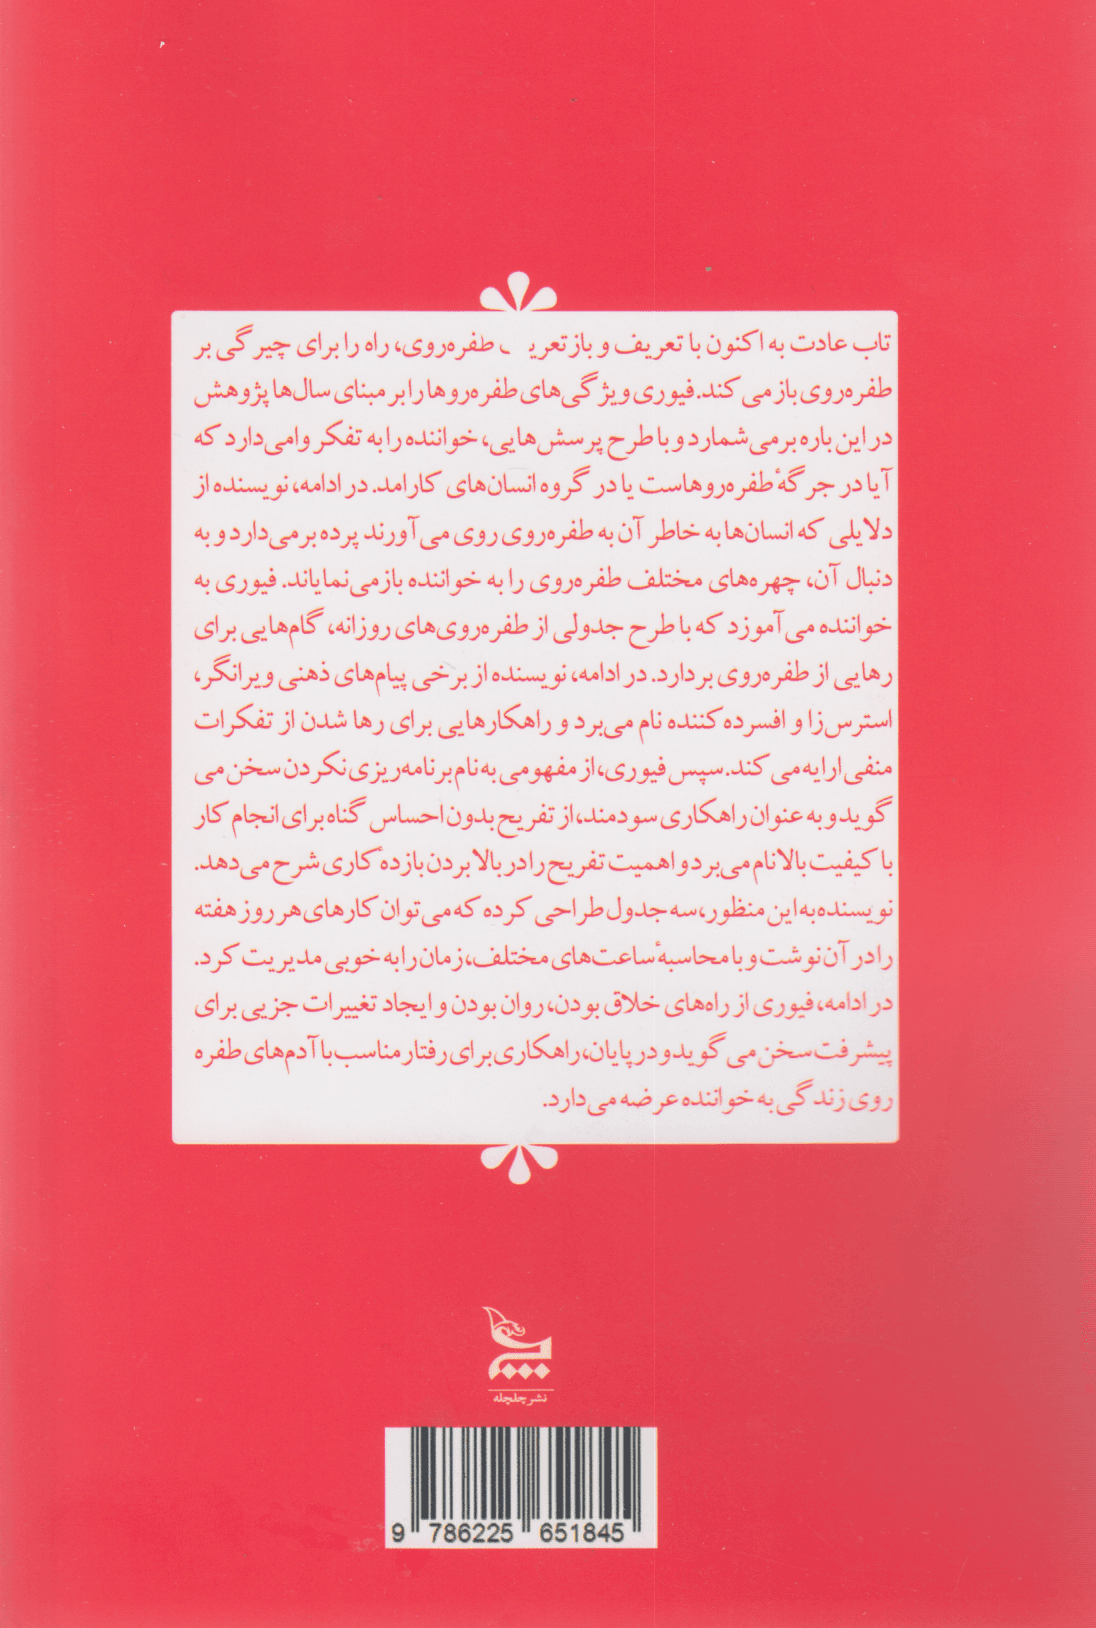 تاب عادت به اکنون با تعریف و بازتعری طفره‌روی، راه را برای چیرگی بر
طفره‌روی باز می‌کند. فیوری ویژگی‌های طفره‌روها را بر مبنای سال‌ها پژوهش
در این باره برمی‌شمارد و با طرح پرسش‌هایی، خواننده را به تفکر وامی‌دارد که
آیا در جرگهٔ طفره‌روهاست یا در گروه انسان‌های کارامد. در ادامه، نویسنده از
دلایلی که انسان‌ها به خاطر آن به طفره‌روی روی می‌آورند پرده برمی‌دارد و به
دنبال آن، چهره‌های مختلف طفره‌روی را به خواننده بازمی‌نمایاند. فیوری به
خواننده می‌آموزد که با طرح جدولی از طفره‌روی‌های روزانه، گام‌هایی برای
رهایی از طفره‌روی بردارد. در ادامه، نویسنده از برخی پیام‌های ذهنی ویرانگر،
استرس‌زا و افسرده کننده نام می‌برد و راهکارهایی برای رها شدن از تفکرات
منفی ارایه می‌کند. سپس فیوری، از مفهومی به نام برنامه‌ریزی نکردن سخن می
گوید و به عنوان راهکاری سودمند، از تفریح بدون احساس گناه برای انجام کار
با کیفیت بالا نام می‌برد و اهمیت تفریح را در بالا بردن بازدهٔ کاری شرح می‌دهد.
نویسنده به این منظور، سه جدول طراحی کرده که می‌توان کارهای هر روز هفته
را در آن نوشت و با محاسبهٔ ساعت‌های مختلف، زمان را به خوبی مدیریت کرد.
در ادامه، فیوری از راه‌های خلاق بودن، روان بودن و ایجاد تغییرات جزیی برای
پیشرفت سخن می‌گوید و در پایان، راهکاری برای رفتار مناسب با آدم‌های طفره
روی زندگی به خواننده عرضه می‌دارد.
نشر چلچله
9 786225 651845